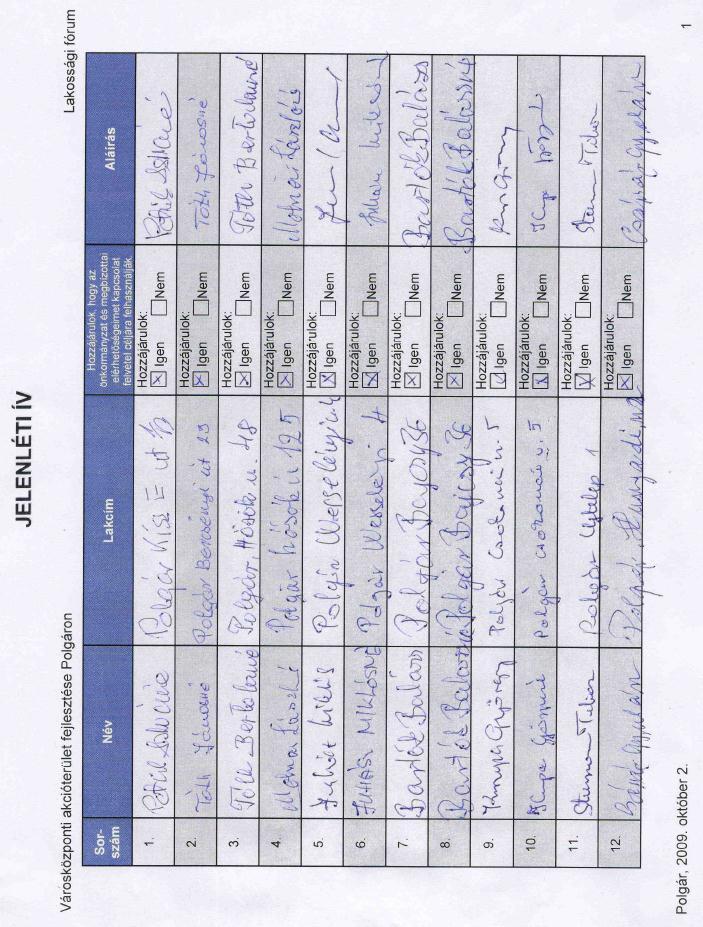 Városközponti akcióterület fejlesztése Polgáron
Lakossági fórum
JELENLÉTI ÍV
Sor-
szám
Név
Lakcím
Hozzájárulok, hogy az
önkormányzat és megbízottai
elérhetőségeimet kapcsolat
felvétel céljára felhasználják.
Aláírás
1.
Polgár Kiss E út
Hozzájárulok:
Igen Nem
2.
Tóth Jánosné Polgár Bercsényi út 23
Hozzájárulok:
Igen Nem
Tóth Jánosné
3.
Tóth Bertalanné Polgár, Hősök u. 48
Hozzájárulok:
Igen Nem
Tóth Bertalanné
4.
Molnár László Polgár hősök u 125
Hozzájárulok:
Igen Nem
Molnár Lászlóné
5.
Juhász Miklós Polgár Wesselényi
Hozzájárulok:
Igen Nem
6.
JUHÁSZ MIKLÓSNÉ Polgár Wesselényi 4
Hozzájárulok:
Igen Nem
Juhász Miklósné
7.
Bartók Balázs Polgár Bajcsy 36
Hozzájárulok:
Igen Nem
Bartók Balázs
8.
Bartók Balázsné Polgár Bajcsy 36
Hozzájárulok:
Igen Nem
Bartók Balázsné
9.
György Polgár Csokonai u. 5
Hozzájárulok:
Igen Nem
10.
Polgár Csokonai u. 5
Hozzájárulok:
Igen Nem
11.
Tibor Polgár 1
Hozzájárulok:
Igen Nem
Tibor
12.
Gyuláné Polgár, Hunyadi
Hozzájárulok:
Igen Nem
Gyuláné
Polgár, 2009. október 2.
1